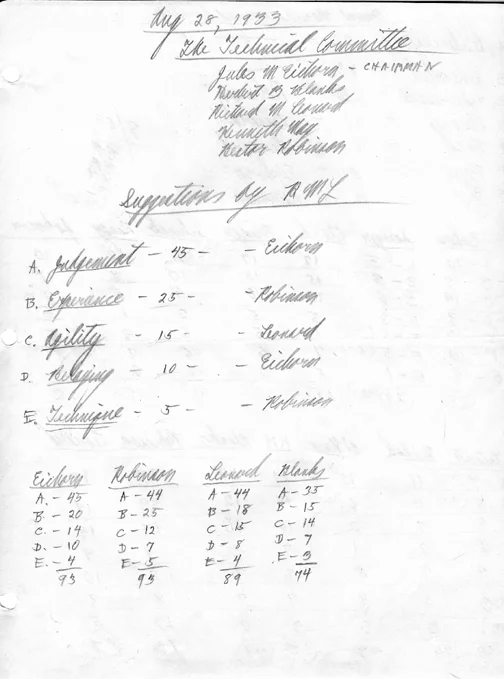 Aug 28, 1933
The Technical Committee
Jules M Eichorn - CHAIRMAN
Herbert B Blanks
Richard M Leonard
Kenneth May
Hector Robinson
Suggestions by RML
A. Judgement - 45 - - Eichorn
B. Experience - 25 - - Robinson
C. Agility - 15 - - Leonard
D. Belaying - 10 - - Eichorn
E. Technique - 5 - - Robinson
Eichorn Robinson Leonard Blanks
A. - 45 A - 44 A - 44 A - 35
B. - 20 B - 25 B - 18 B - 15
C. - 14 C - 12 C - 15 C - 14
D. - 10 D - 7 D - 8 D - 7
E. - 4 E - 5 E - 4 E - 3
93 93 89 74